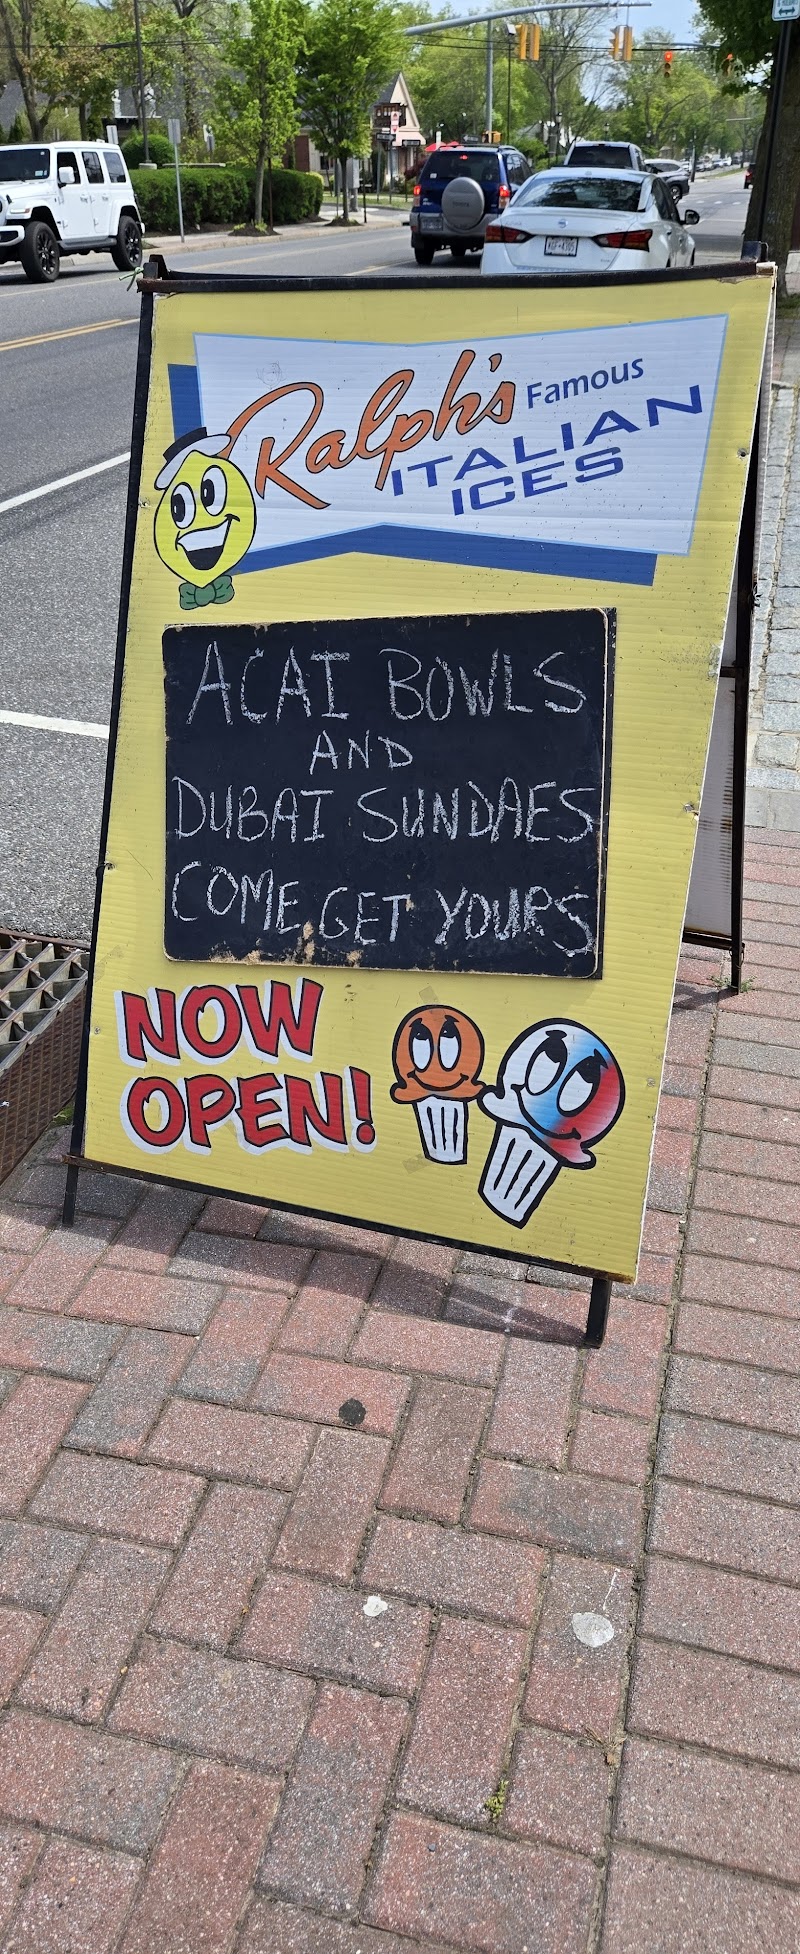 Ralph's Famous
ITALIAN
ICES
ACAI BOWLS
AND
DUBAI SUNDAES
COME GET YOURS
NOW
OPEN!